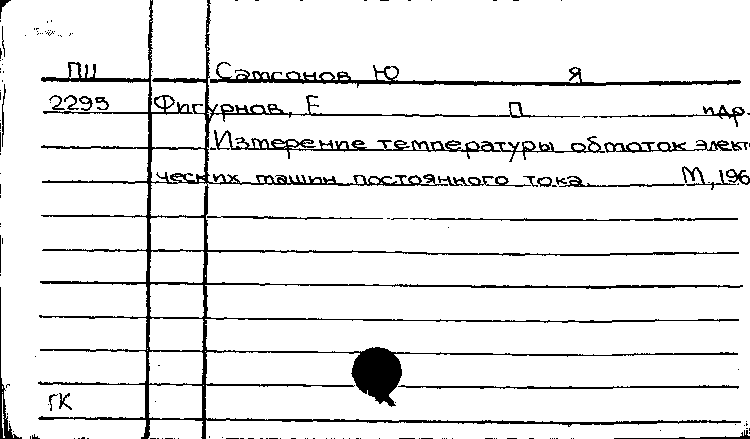 ПII Самсонов, Ю Я
2295 Фигурнов, Е П идр.
Измерение температуры обмоток элект
ческих машин постоянного тока. М, 196
ГК